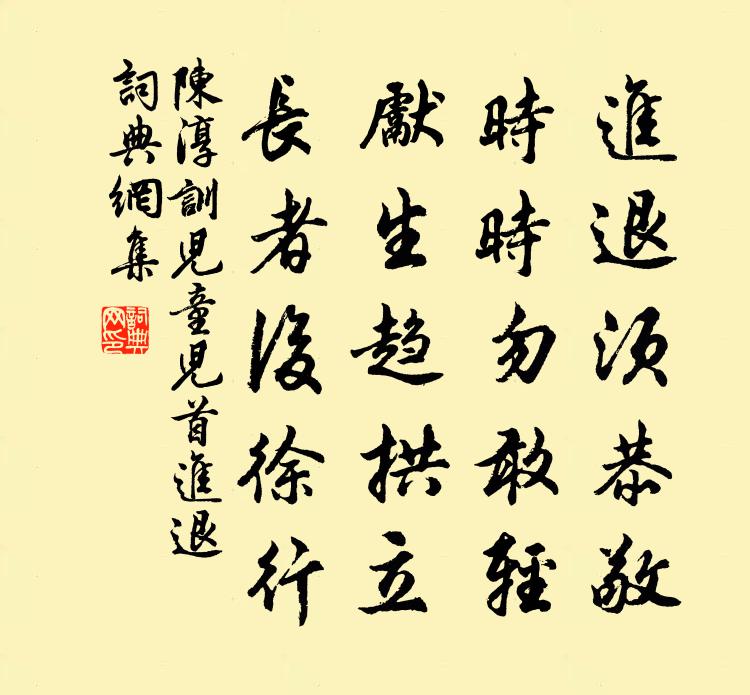 進退須恭敬
時時勿敢輕
獻生趨拱立
長者後徐行
陳淳訓兒童兒首進退
詞典網集
詞典网印